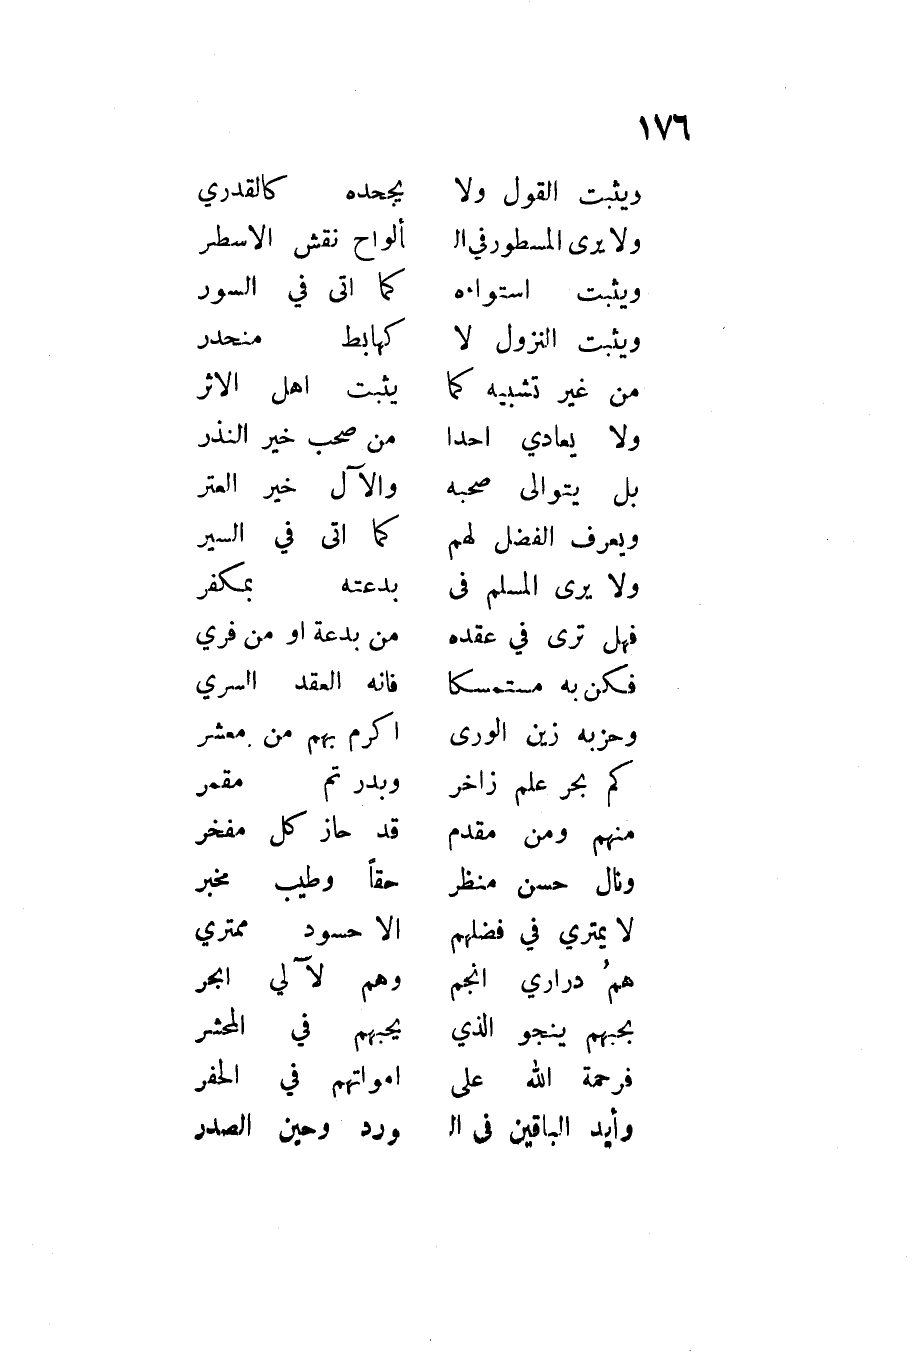 ١٧٦
ويثبت القول ولا يجحده كالقدري
ولا يرى المسطور في ال ألواح نقش الاسطر
ويثبت استواءه كما اتى في السور
ويثبت النزول لا كهابط منحدر
من غير تشبيه كما يثبت اهل الاثر
ولا يعادي احدا من صحب خير النذر
بل يتوالى صحبه والآل خير العتر
ويعرف الفضل لهم كما اتى في السير
ولا يرى المسلم فى بدعته بمكفر
فهل ترى في عقده من بدعة او من فري
فكن به مستمسكا فانه العقد السري
وحزبه زين الورى اكرم بهم من معشر
كم بحر علم زاخر وبدر تم مقمر
منهم ومن مقدم قد حاز كل مفخر
ونال حسن منظر حقاً وطيب مخبر
لا يمتري في فضلهم الا حسود ممتري
همُ دراري انجم وهم لآلي ابحر
بحبهم ينجو الذي يحبهم في المحشر
فرحمة الله على امواتهم في الحفر
وأيد الباقين فى ال ورد وحين الصدر